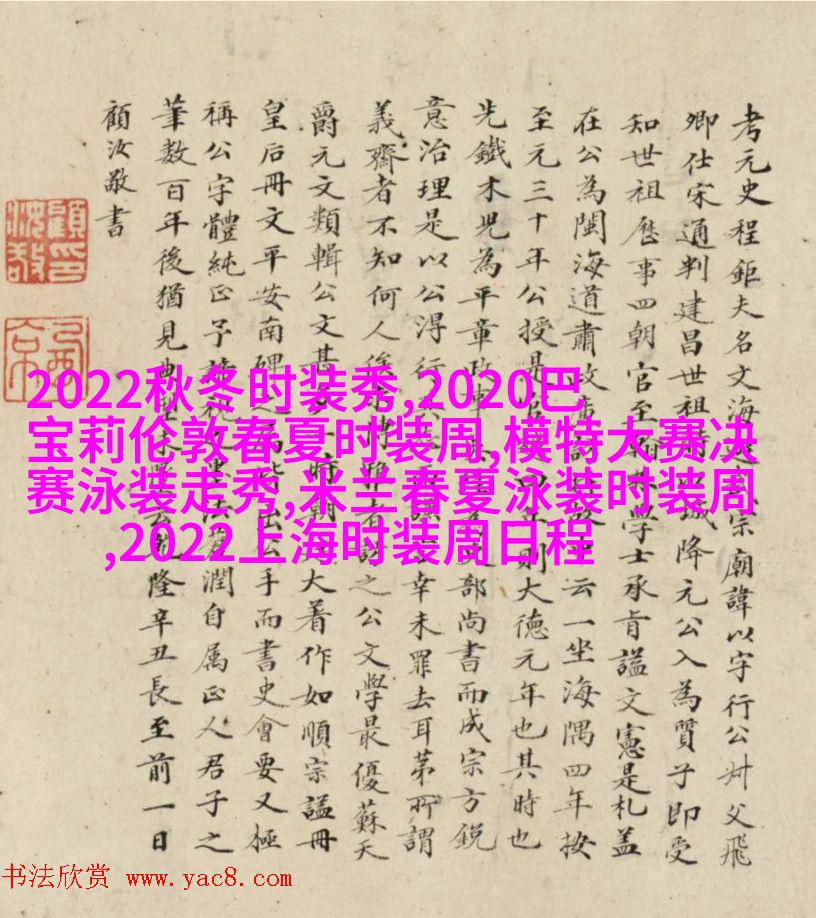 考元史程鉅夫名文海宗廟諱以字行公叔父飛
卿仕宋通判建昌世祖城降元公入為質子即受
知世祖歷事四朝官至學士承旨諡文憲是札蓋
在公為閩海道肅政廉訪云一坐海隅四年按
至元三十年公授是官四年則大德元年也其時也
先鐵木兒為平章政事部尚書而成宗方銳
意治理是以公得行幸未罪去耳苐所謂
義齋者不知何人俟博雅者訂之公文學最優蘇天
爵元文類輯公文甚朝大著作如順宗諡冊
皇后冊文平安南碑之出公手而書史會要又極
稱公字體純正予諦視書法潤自属正人君子之
筆數百年後猶見典型云乾隆辛丑長至前一日
顧汝敬書
2022秋冬时装秀,2020巴
宝莉伦敦春夏时装周,模特大赛决
赛泳装走秀,米兰春夏泳装时装周
,2022上海时装周日程
书法欣赏 www.yac8.com